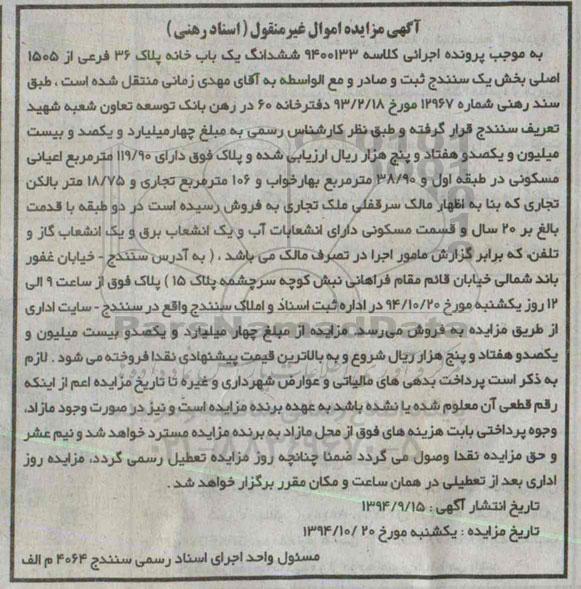 آگهی مزایده اموال غیر منقول ( اسناد رهنی )
به موجب پرونده اجرائی کلاسه ۹۴۰۰۱۳۳ ششدانگ یک باب خانه پلاک ۳۶ فرعی از ۱۵۰۵
اصلی بخش یک سنندج ثبت و صادر و مع الواسطه به آقای مهدی زمانی منتقل شده است ، طبق
سند رهنی شماره ۱۲۹۶۷ مورخ ۹۳/۲/۱۸ دفترخانه ۶۰ در رهن بانک توسعه تعاون شعبه شهید
تعریف سنندج قرار گرفته و طبق نظر کارشناس رسمی به مبلغ چهارمیلیارد و یکصد و بیست
میلیون و یکصدو هفتاد و پنج هزار ریال ارزیابی شده و پلاک فوق دارای ۱۱۹/۹۰ مترمربع اعیانی
مسکونی در طبقه اول و ۳۸/۹۰ مترمربع بهارخواب و ۱۰۶ مترمربع تجاری و ۱۸/۷۵ متر بالکن
تجاری که بنا به اظهار مالک سرقفلی ملک تجاری به فروش رسیده است در دو طبقه با قدمت
بالغ بر ۲۰ سال و قسمت مسکونی دارای انشعابات آب و یک انشعاب برق و یک انشعاب گاز و
تلفن، که برابر گزارش مامور اجرا در تصرف مالک می باشد ، ( به آدرس سنندج - خیابان غفور
باند شمالی خیابان قائم مقام فراهانی نبش کوچه سرچشمه پلاک ۱۵ ) پلاک فوق از ساعت ۹ الی
۱۲ روز یکشنبه مورخ ۹۴/۱۰/۲۰ در اداره ثبت اسناد و املاک سنندج واقع در سنندج - سایت اداری
از طریق مزایده به فروش می رسد. مزایده از مبلغ چهار میلیارد و یکصدو بیست میلیون و
یکصدو هفتاد و پنج هزار ریال شروع و به بالاترین قیمت پیشنهادی نقدا فروخته می شود . لازم
به ذکر است پرداخت بدهی های مالیاتی و عوارض شهرداری و غیره تا تاریخ مزایده اعم از اینکه
رقم قطعی آن معلوم شده یا نشده باشد به عهده برنده مزایده است و نیز در صورت وجود مازاد،
وجوه پرداختی بابت هزینه های فوق از محل مازاد به برنده مزایده مسترد خواهد شد و نیم عشر
و حق مزایده نقدا وصول می گردد ضمنا چنانچه روز مزایده تعطیل رسمی گردد، مزایده روز
اداری بعد از تعطیلی در همان ساعت و مکان مقرر برگزار خواهد شد .
تاریخ انتشار آگهی : ۱۳۹۴/۹/۱۵
تاریخ مزایده : یکشنبه مورخ ۲۰ /۱۳۹۴/۱۰
مسئول واحد اجرای اسناد رسمی سنندج ۴۰۶۴ م الف